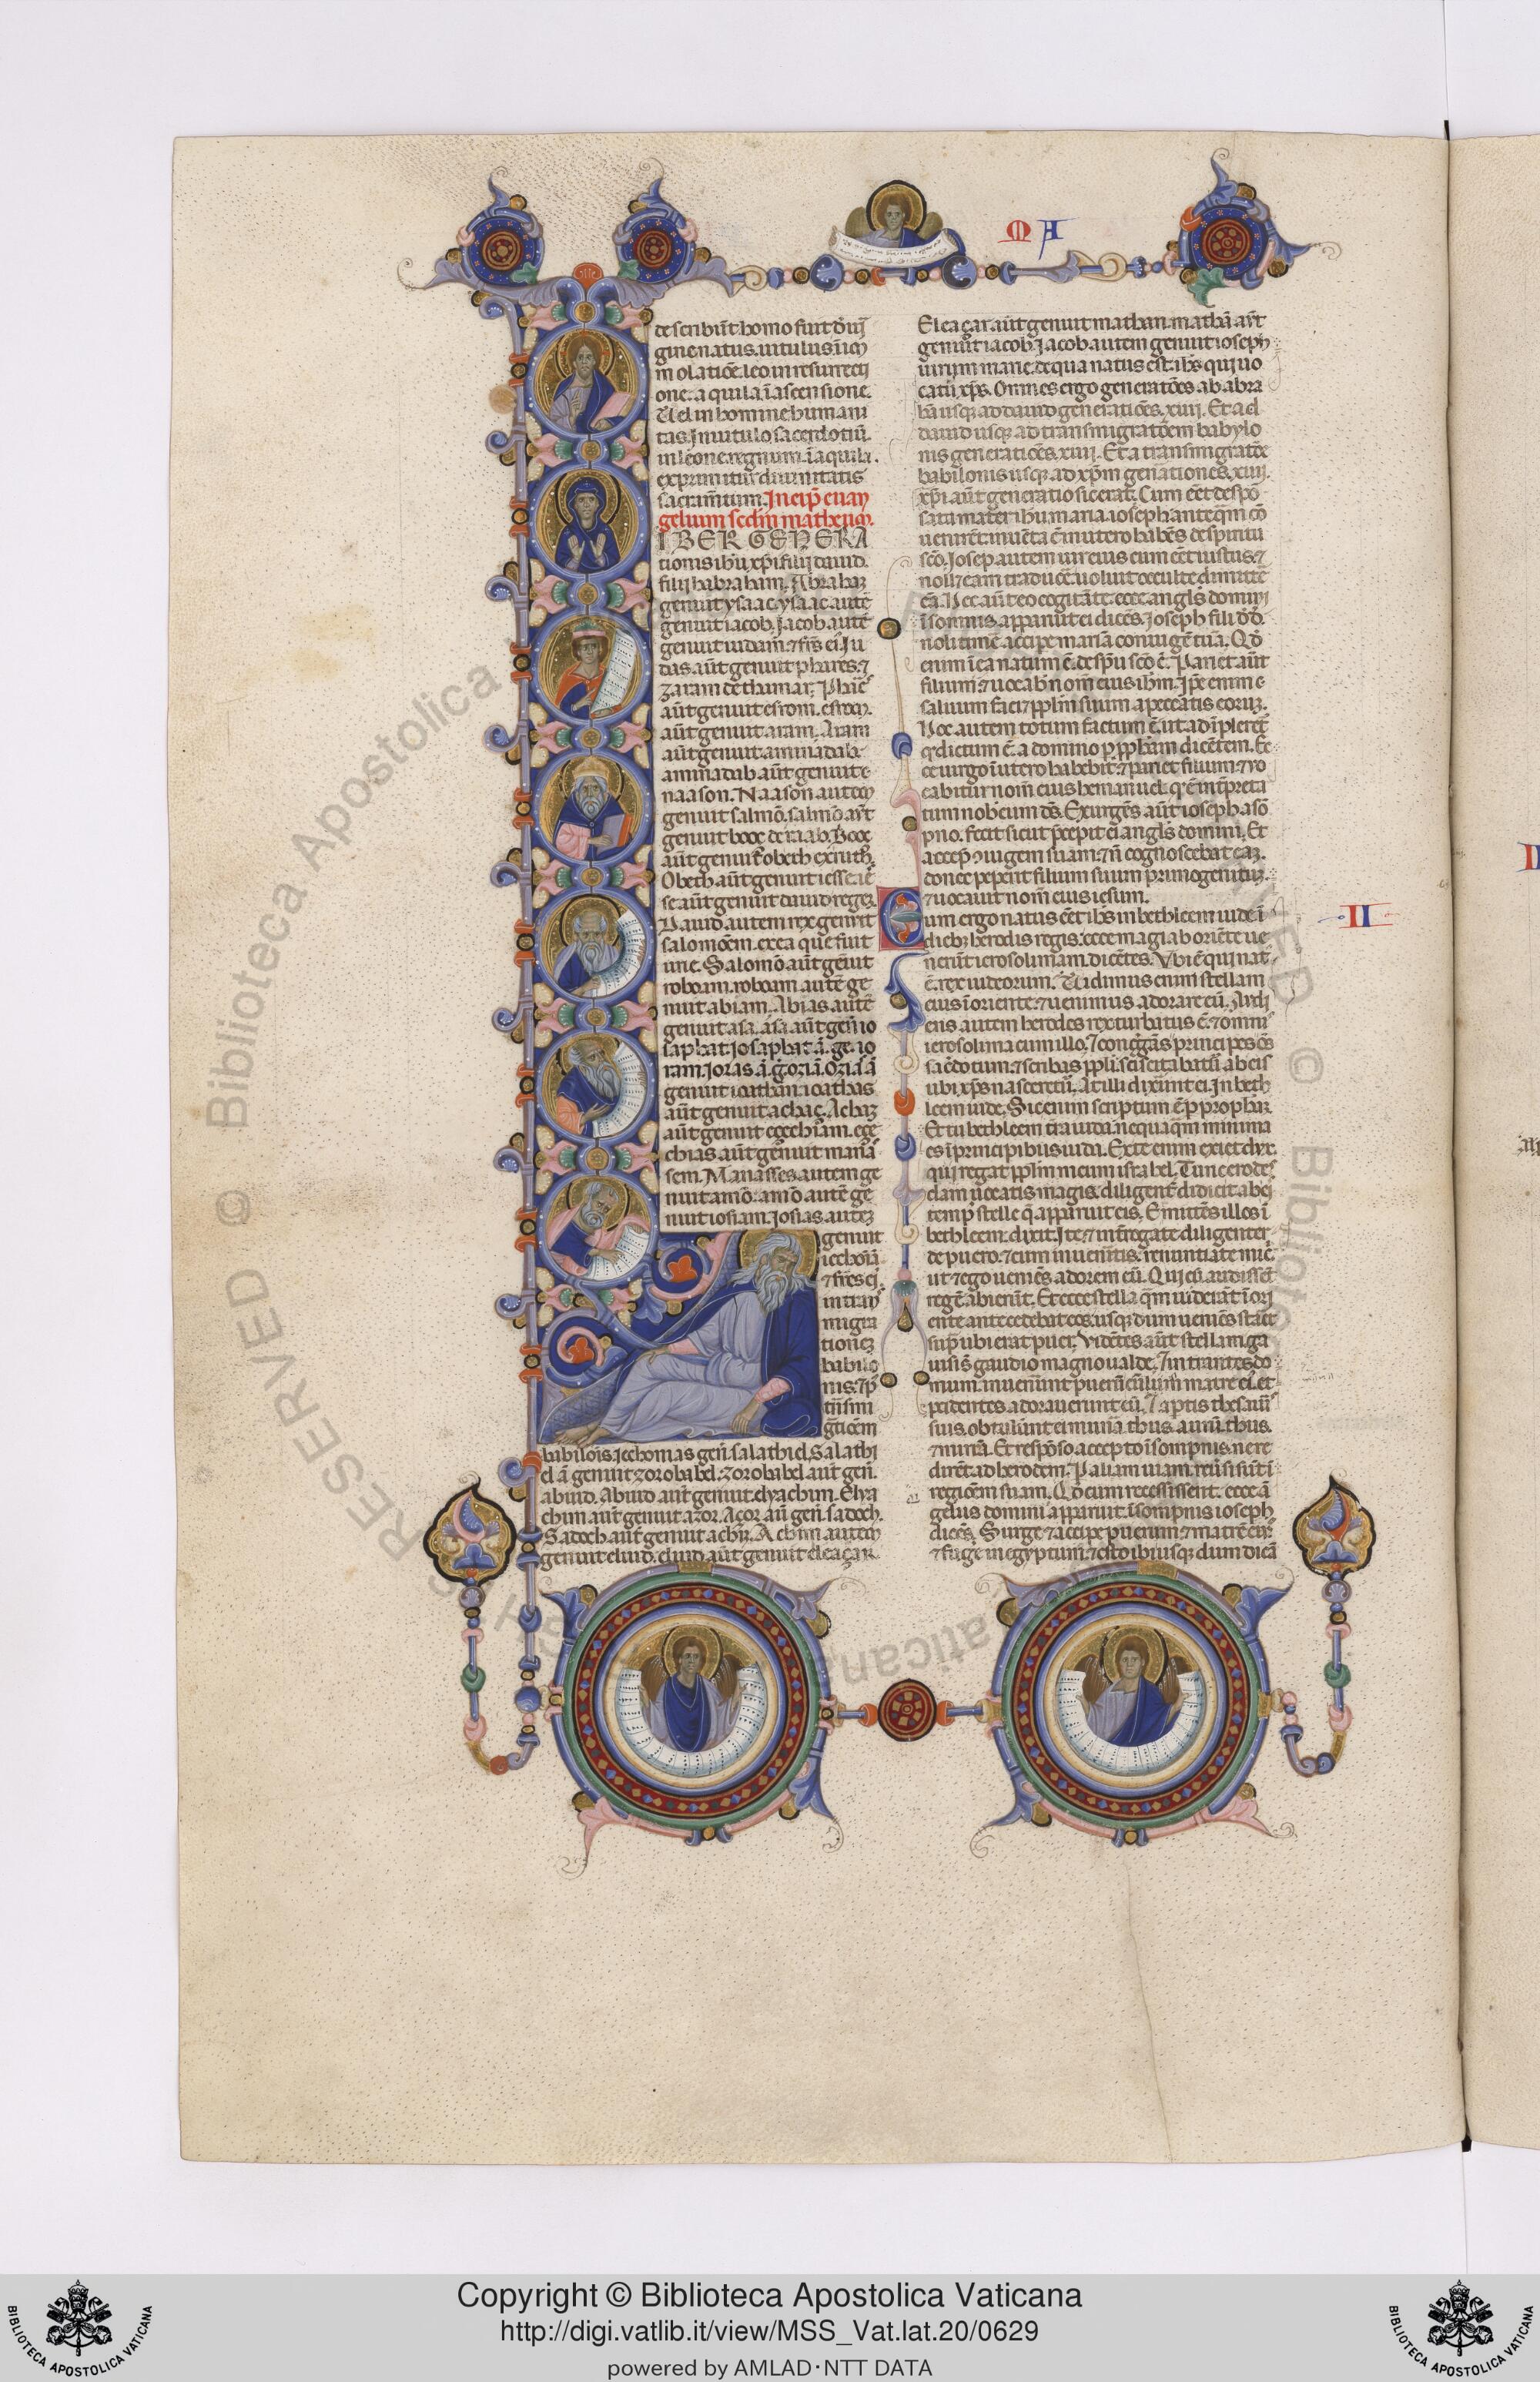 M A
describunt homo fuit d'uir
gine natus. uitulus in im
molatiõe. leo in resurrecti
one. aquila ĩ ascensione.
Vel in homine humani
tas. In uitulo sacerdotiũ.
in leone regnum. ĩ aquila.
exprimitur diuinitatis
sacramtum. Incip̃ euan
gelium scdm matheum.
IBER GENERA
tionis ihũ xp̃i filii dauid.
filii habraham. Abraham
genuit ysaac. ysaac autẽ
genuit iacob. Iacob autẽ
genuit iudam. ⁊ frẽs ei. Iu
das aũt genuit phares. ⁊
zaram de thamar. Phaẽs
aũt genuit esrom. esrom.
aũt genuit aram. Aram
aũt genuit aminadab.
aminadab aũt genuit
naason. Naason autem
genuit salmõ. salmõ aũt
genuit booz de raab. Booz
aũt genuit obeth ex ruth.
Obeth aũt genuit iesse. ies
se aũt genuit dauid regem.
Dauid autem rex genuit
salomõem. ex ea que fuit
urie. Salomõ aũt genuit
roboam. roboam autẽ ge
nuit abiam. Abias autẽ
genuit asa. asa aũt genũ io
saphat. iosaphat ã. ge. io
ram. ioras ã. g. oziã. ozia ã
genuit ioathan. ioathas
aũt genuit achaz. Achaz
aũt genuit ezechiam. eze
chias aũt genuit manas
sem. Manasses autem ge
nuit amõ. amõ autẽ ge
nuit iosiam. Iosias autem
genuit
iechoniã
⁊ frẽs ei
in trans
migra
tionem
babilo
nis. ⁊ p̃
trñsmi
gratiõem
babilois. iechonias genũ. salathiel. Salathi
el ã genuit zorobabel. zorobabel aũt genũ.
abiud. Abiud aũt genuit. elyachim. Elya
chim aũt genuit azor. Azor aũ genũ sadoch.
Sadoch aũt genuit achim. Achim autem
genuit eliud. eliud aũt genuit eleazar.
Eleazar aũt genuit mathan. mathã aũt
genuit iacob. Iacob autem genuit ioseph
uirum marie. de qua natus est ihs qui uo
catur xp̃s. Omnes ergo generatões ab abra
hã usq; ad dauid generatiões. xiiij. Et a d
dauid usq; ad transmigratõem babylo
nis generatiões. xiiij. Et a transmigratõe
babilonis usq; ad xp̃m genãtiones. xiiij.
xp̃i aũt generatio sic erat. Cum eẽt despõ
sata mater ihu maria ioseph anteq̃m cõ
uenirẽt inuẽta ẽ in utero habẽs de spiritu
scõ. Iosep autem uir eius cum eẽt iustus. ⁊
noll; eam traducẽ. uoluit occulte dimittẽ
eã. Hec aũt eo cogitãte. ecce angl̃s domini
ĩ somnis. apparuit ei dicẽs. Ioseph fili dd.
noli timẽ accipe mariã coniugẽ tuã. Qõ
enim ĩ ea natum ẽ. de sp̃u scõ ẽ. Pariet aũt
filium. ⁊ uocab̃ nom̃ eius ihm̃. Ip̃e enim
saluum faci; p̃plm̃ suum. a peccatis eorum.
Hoc autem totum factum ẽ. ut adĩpleret̃
q̃ dictum ẽ. a domino p p̃pham dicẽtem. Ec
ce uirgo ĩ utero habebit. ⁊ pariet filium. ⁊ uo
cabitur nom̃ eius hemanuel. q̃ ẽ inp̃reta
tum nobcum ds̃. Exurgẽs aũt ioseph a sõ
pno. fecit sicut p̃cepit ei angl̃s domini. Et
accep̃ ↄiugem suam. ⁊ ñ cognoscebat eam.
donec peperit filium suum primogenitum.
⁊ uocauit nom̃ eius iesum.
II
Cum ergo natus eẽt ihs in bethleem iude ĩ
dieb; herodis regis. ecce magi ab oriẽte ue
nerũt ierosolimam. dicẽtes. Vbi ẽ qui nat̃
ẽ. rex iudeorum. Vidimus enim stellam
eius ĩ oriente. ⁊ uenimus adorare eũ. Audi
ens autem herodes rex turbatus ẽ. ⁊ omnis
ierosolima cum illo. ⁊ congr̃gãs principes oẽs
sacẽdotum. ⁊ scribas p̃pli. sciscitabatũ ab eis
ubi xp̃s nasceretũ. At illi dixerũt ei. In beth
leem iude. Sic enim scriptum ẽ p prophãm.
Et tu bethleem t̃ra iuda. nequaq̃m minima
es ĩ principibus iuda. Ex te enim exiet dux.
qui regat p̃plm̃ meum israhel. Tunc herodes
clam uocatis magis. diligent̃ didicit ab ei
temp̃ stelle q̃ apparuit eis. Et mittẽs illos ĩ
bethleem. dixit. Ite. ⁊ inter̃rogate diligenter
de puero. ⁊ cum inuenitis. renuntiate mic̃.
ut ⁊ ego ueniẽs adorem eũ. Qui cũ audissẽt
regẽ abierũt. Et ecce stella q̃m uiderãt ĩ ori
ente antecedebat eos. usq; dum ueniẽs staret̃
sup̃ ubi erat puer. Vidẽtes aũt stellam. ga
uisi sũt gaudio magno ualde. ⁊ intrantes do
mum. inuenerũt puerũ cũ maria matre ei. et
procidentes adorauerunt eũ. ⁊ aptis thesauris
suis. obtulerũt ei munera. thus. aurũ. thus.
⁊ mirra. Et respõso accepto ĩ sompnis. ne re
dirẽt ad herodem. P aliam uiam reũsi sũt ĩ
regiõem suam. Qõ cum recessissent. ecce ã
gelus domini apparuit. ĩ sompnis ioseph
dicẽs. Surge. ⁊ accipe puerum. ⁊ matrẽ ei.
⁊ fuge in egyptum. ⁊ esto ibi usq; dum dicã
Copyright © Biblioteca Apostolica Vaticana
http://digi.vatlib.it/view/MSS_Vat.lat.20/0629
powered by AMLAD·NTT DATA
BIBLIOTECA APOSTOLICA VATICANA
BIBLIOTECA APOSTOLICA VATICANA